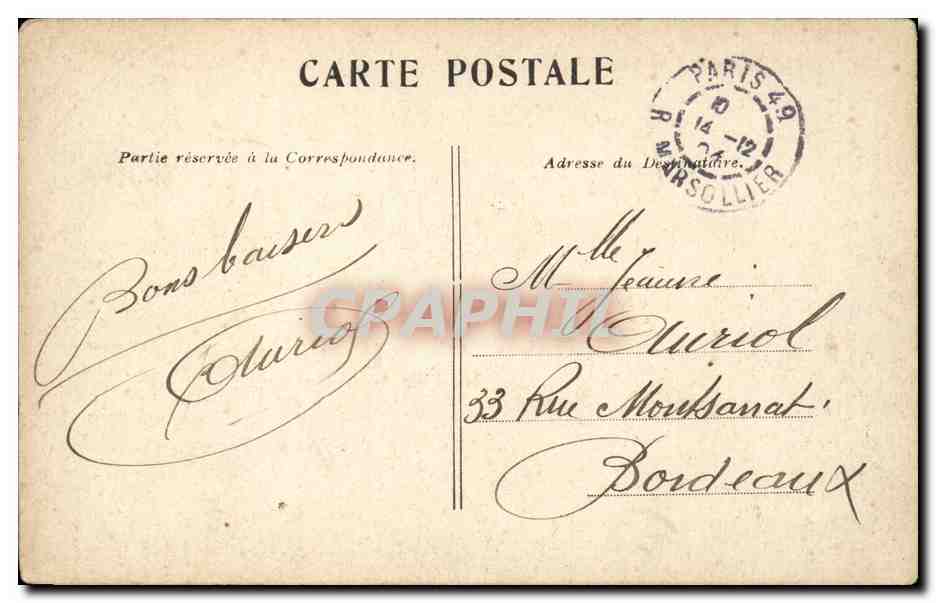 CARTE POSTALE
PARIS 49
R MARSOLLIER
14 -12
Partie réservée à la Correspondance.
Adresse du Destinataire.
Bons baisers
Auriol
Mlle Jeanne
Auriol
33 Rue Montsarrat
Bordeaux
CPAPHIL